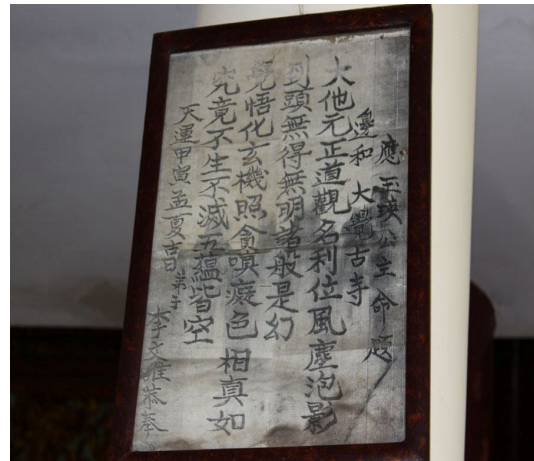 應玉瑛公主命題
邊和大覺古寺
大他元正道觀名利位風塵泡影
到頭無得無明諸般是幻
覺悟化玄機照貪嗔癡色相真如
究竟不生不滅五蘊皆空
天運甲寅孟夏吉日弟子李文恭奉